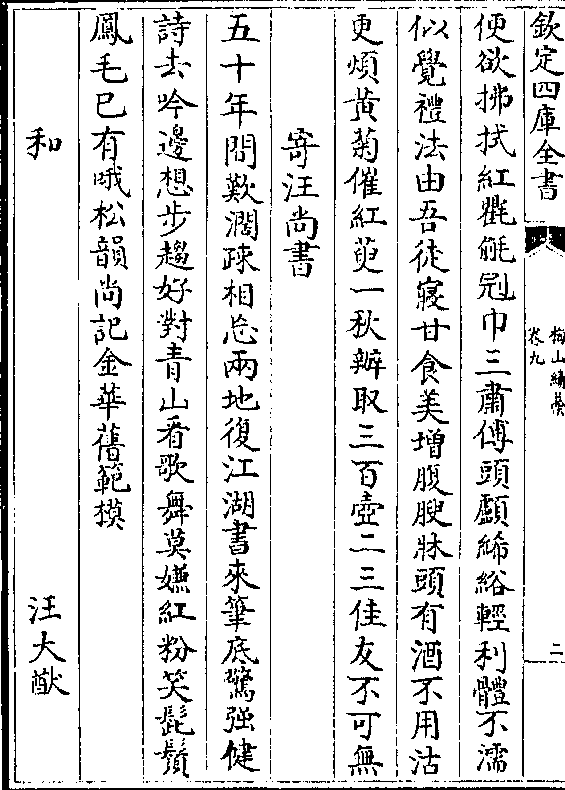 欽定四庫全書
梅山續藁
卷九
二
便欲拂拭紅氍毹冠巾三肅傅頭顱絺綌輕利體不濡
似覺禮法由吾徒寢甘食美增腹腴牀頭有酒不用沽
更煩黃菊催紅萸一秋辦取三百壺二三佳友不可無
寄汪尚書
五十年間歎濶疎相忘兩地復江湖書來筆底驚强健
詩去吟邊想步趨好對青山看歌舞莫嫌紅粉笑髭鬚
鳳毛已有哦松韻尚記金華舊範模
和
汪大猷